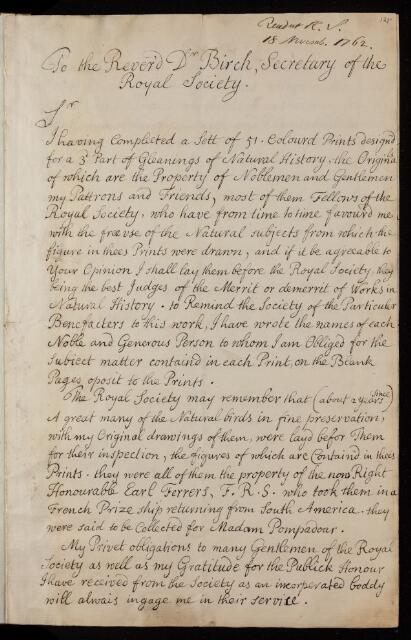 Read at R. S.
18 Novemb. 1762.
To the Reverd Dr Birch, Secretary of the
Royal Society.
Sr
I having Completed a Sett of 51. Colourd Prints design'd
for a 3d Part of Gleanings of Natural History, the Original
of which are the Property of Noblemen and Gentlemen
my Pattrons and Friends, most of them Fellows of the
Royal Society, who have from time to time favour'd me
with the free use of the Natural subjects from which the
figure in thees Prints were drawn, and if it be agreeable to
Your Opinion I shall lay them before the Royal Society, they
being the best Judges of the Merrit or demerrit of Works in
Natural History. to Remind the Society of the Particuler
Benefacters to this work, I have wrote the names of each
Noble and Generous Person to whom I am Obliged for the
Subject matter containd in each Print, on the Blank
Pages oposit to the Prints.
The Royal Society may remember that (about 2 years since)
A great many of the Natural birds in fine preservation,
with my Original drawings of them, were layd befor Them
for their inspection, the figures of which are Containd in thees
Prints. they were all of them the property of the now Right
Honourable Earl Ferrers, F. R. S. who took them in a
French Prize ship returning from South America. they
were said to be Collected for Madam Pompadour.
My Privet obligations to many Gentlemen of the Royal
Society as well as my Gratitude for the Publick Honour
I have received from the Society as an incorperated boddy
will alwais ingage me in their service.